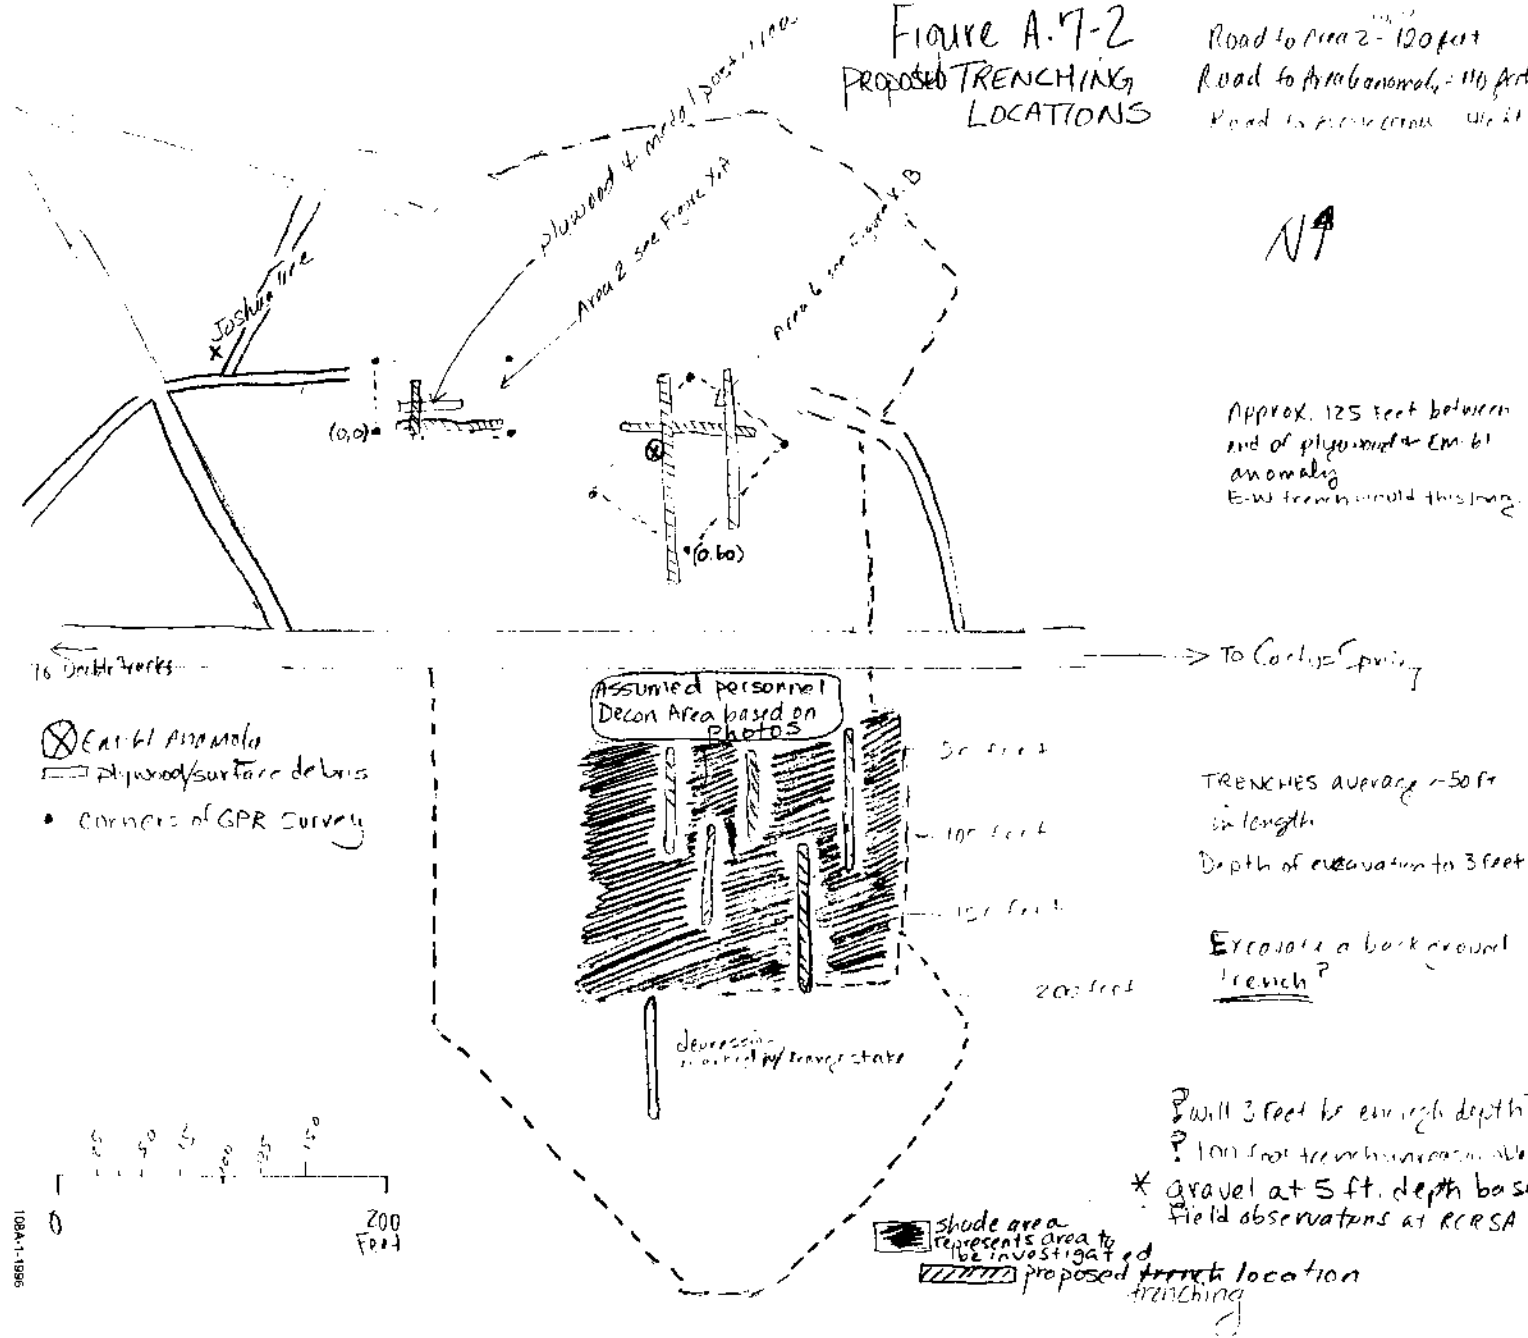 Figure A.7-2
proposed TRENCHING
LOCATIONS
Road to Area 2 - 120 feet
Road to Area 6 anomaly - 110 feet
Road to
N
plywood & metal post
Area 2 see Figure X.A
Area 6 see Figure X.B
Joshua Tree
x
(0,0)
(0.60)
Approx. 125 feet between
end of plywood & EM-61
anomaly
E-W trench would this long.
To Double Tracks
To Cactus Spring
Assumed personnel
Decon Area based on
photos
EM-61 Anomaly
plywood/surface debris
• corners of GPR survey
50 feet
100 feet
150 feet
200 feet
TRENCHES average ~50 ft
in length
Depth of excavation to 3 feet
Excavate a background
trench?
depression
marked w/ stake
? will 3 feet be enough depth
? 100 foot trench
* gravel at 5 ft. depth
field observatons at RCRSA
25
50
75
100
150
0
200
Feet
shade area
represents area to
be investigated
proposed trench location
trenching
108A-1-1996